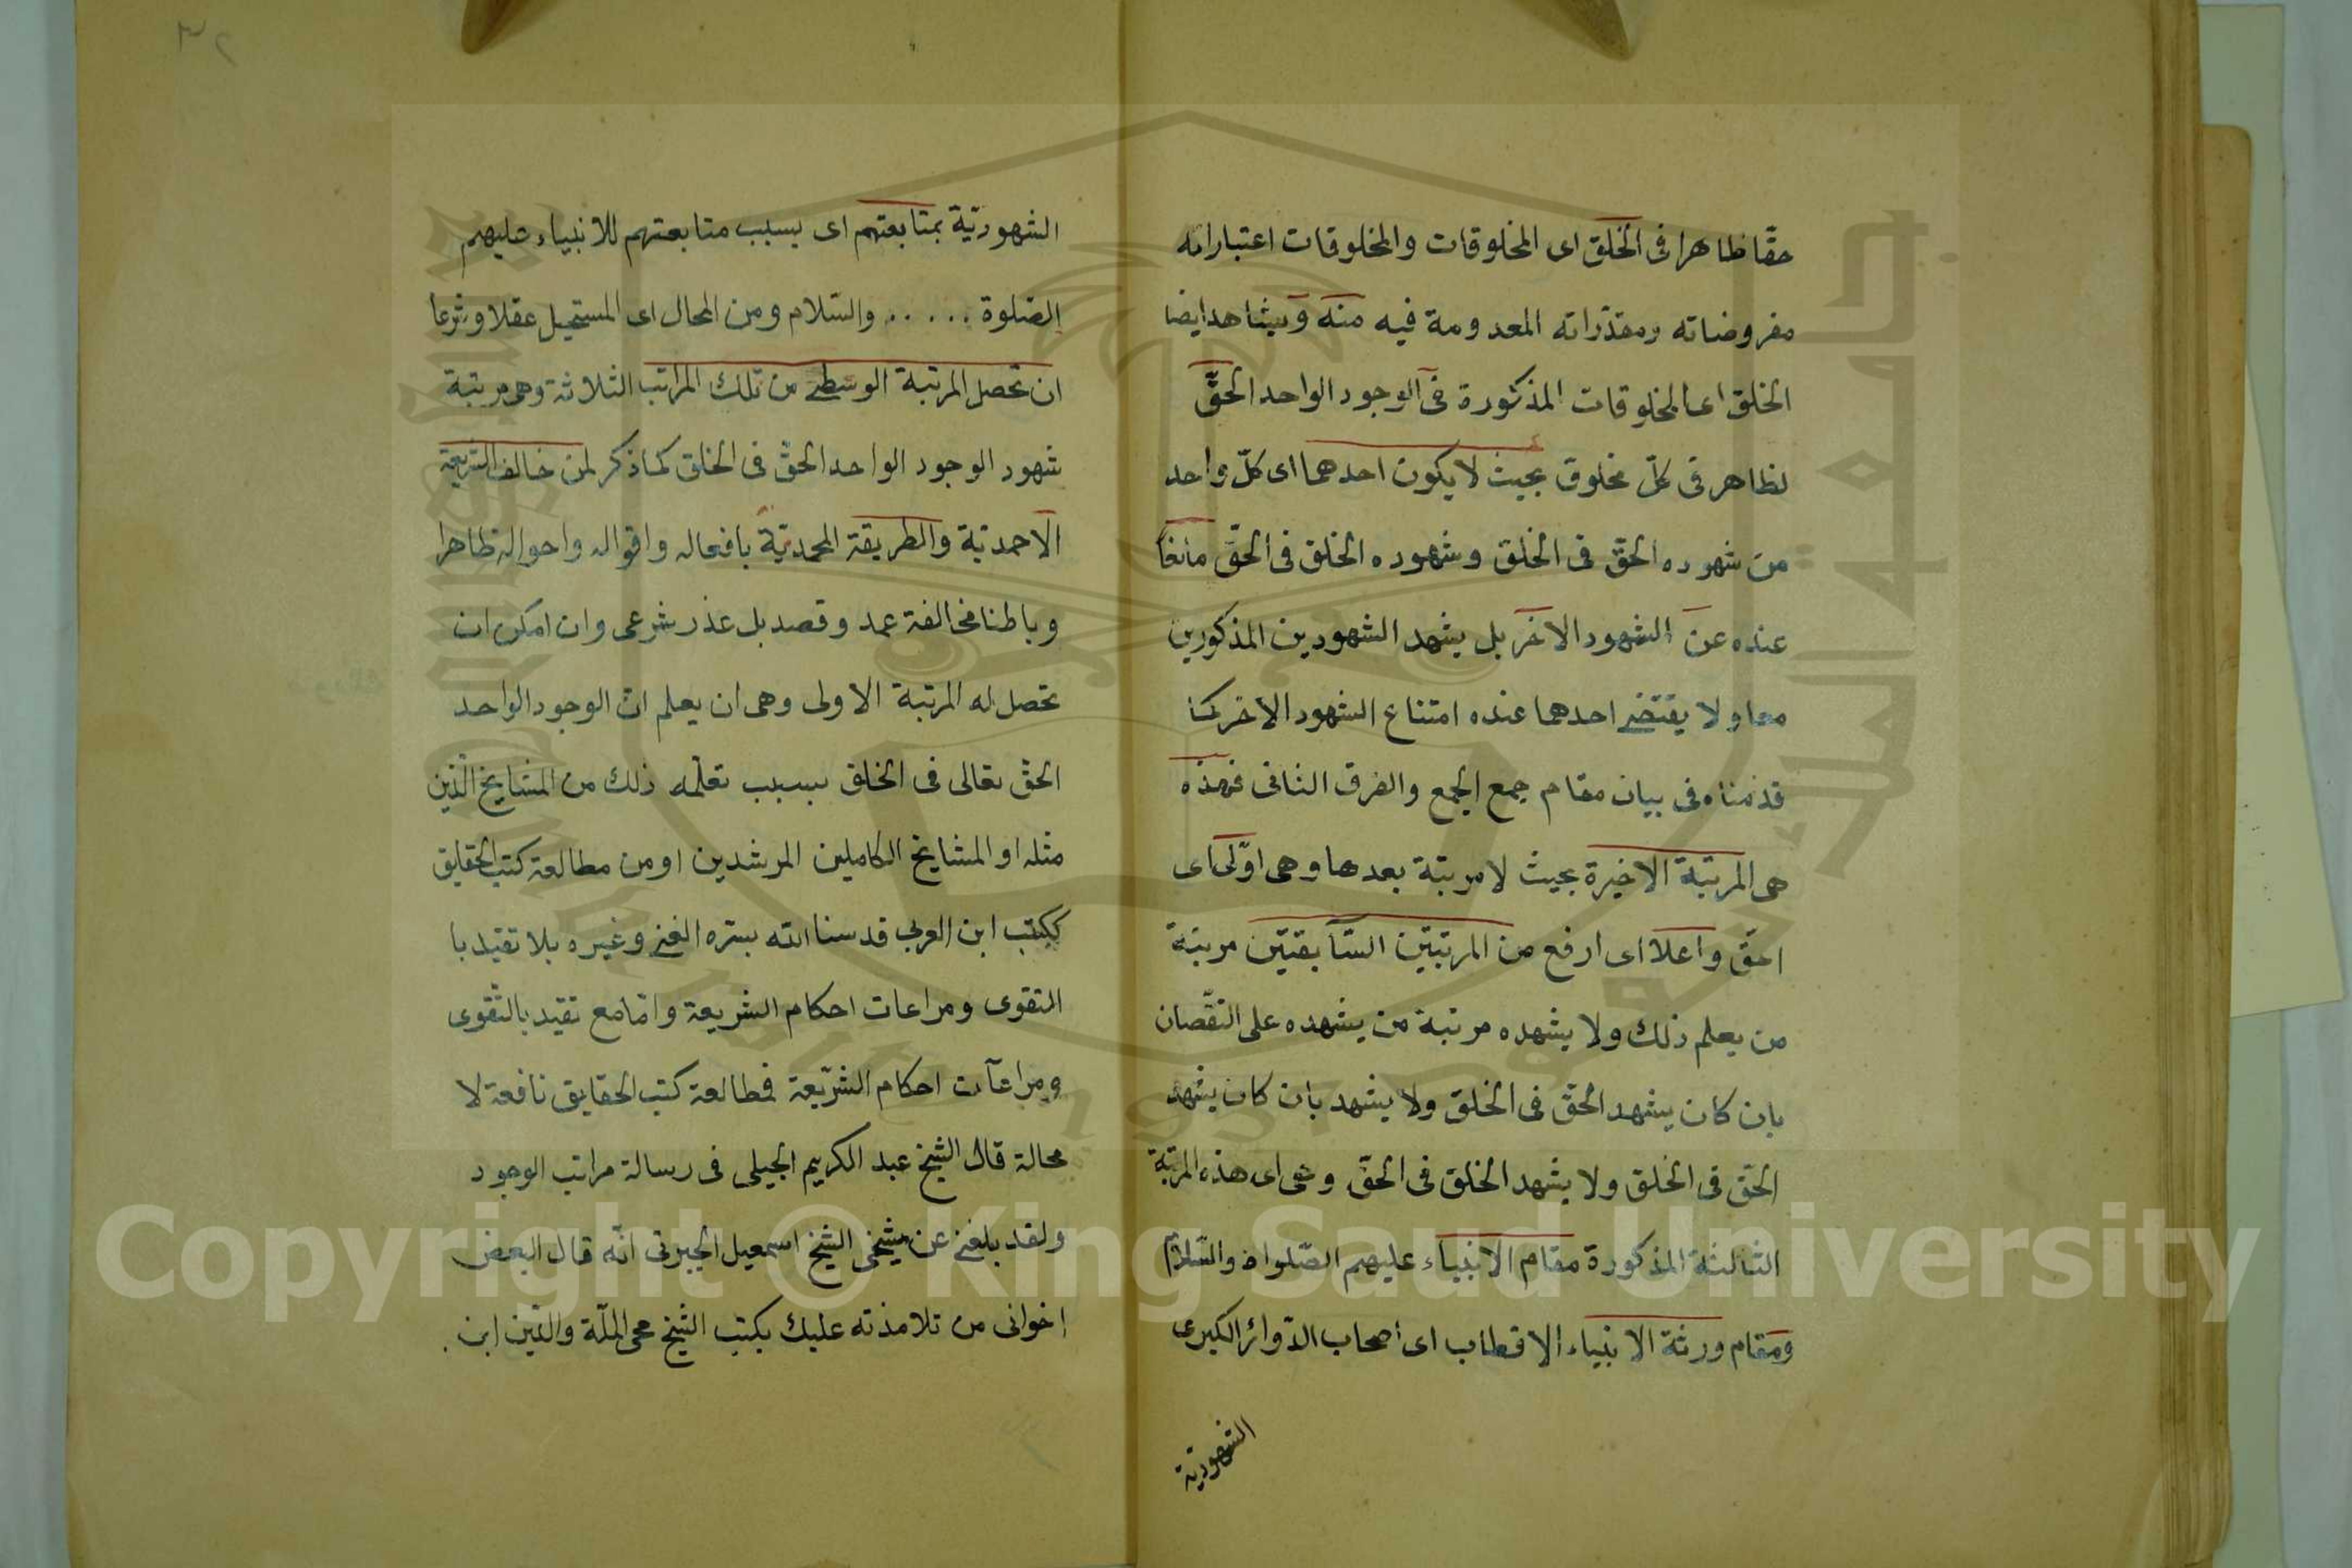 حقّا ظاهرا فى الخلق اى المخلوقات والمخلوقات اعتباراته
مفروضاته ومقدّراته المعدومة فيه منه ويشاهد ايضا
الخلق اى المخلوقات المذكورة فى الوجود الواحد الحقّ
لظاهر فى كلّ مخلوق بحيث لا يكون احدهما اى كلّ واحد
من شهوده الحقّ فى الخلق وشهوده الخلق فى الحقّ مانعا
عنده عن الشهود الاخر بل يشهد الشهودين المذكورين
معا ولا يقتضى احدهما عنده امتناع الشهود الاخر كما
قدمناه فى بيان مقام جمع الجمع والفرق الثانى فهذه
هى المرتبة الاخيرة بحيث لا مرتبة بعدها وهى اولى اى
احقّ واعلا اى ارفع من المرتبتين السّابقتين مرتبة
من يعلم ذلك ولا يشهده مرتبة من يشهده على النقصان
بان كان يشهد الحقّ فى الخلق ولا يشهد بان كان يشهد
الحقّ فى الخلق ولا يشهد الخلق فى الحقّ وهى اى هذه المرتبة
الثالثة المذكورة مقام الانبياء عليهم الصّلواة والسّلام
ومقام ورثة الانبياء الاقطاب اى اصحاب الدّوائر الكبرى
الشهوديّة
٣٢
الشهوديّة بمتابعتهم اى بسبب متابعتهم للانبياء عليهم
الصّلوة ..... والسّلام ومن المحال اى المستحيل عقلا وشرعا
ان تحصل المرتبة الوسطى من تلك المراتب الثلاثة وهى مرتبة
شهود الوجود الواحد الحقّ فى الخلق كما ذكر لمن خالف الشريعة
الاحمديّة والطريقة المحمديّة بافعاله واقواله واحواله ظاهرا
وباطنا مخالفة عمد وقصد بل عذر شرعى وان امكن ان
تحصل له المرتبة الاولى وهى ان يعلم انّ الوجود الواحد
الحقّ تعالى فى الخلق بسبب تعلّمه ذلك من المشايخ الّذين
مثله او المشايخ الكاملين المرشدين او من مطالعة كتب الحقايق
ككتب ابن العربى قدسنا الله بسرّه الغنى وغيره بلا تقيد با
التقوى ومراعات احكام الشريعة وامّا مع تقيد بالتّقوى
ومراعآت احكام الشريعة فمطالعة كتب الحقايق نافعة لا
محالة قال الشيخ عبد الكريم الجيلى فى رسالة مراتب الوجود
ولقد بلغنى عن شيخى الشيخ اسمعيل الجبرتى انّه قال لبعض
اخوانى من تلامذته عليك بكتب الشيخ محى الملّة والدّين ابن
Copyright © King Saud University